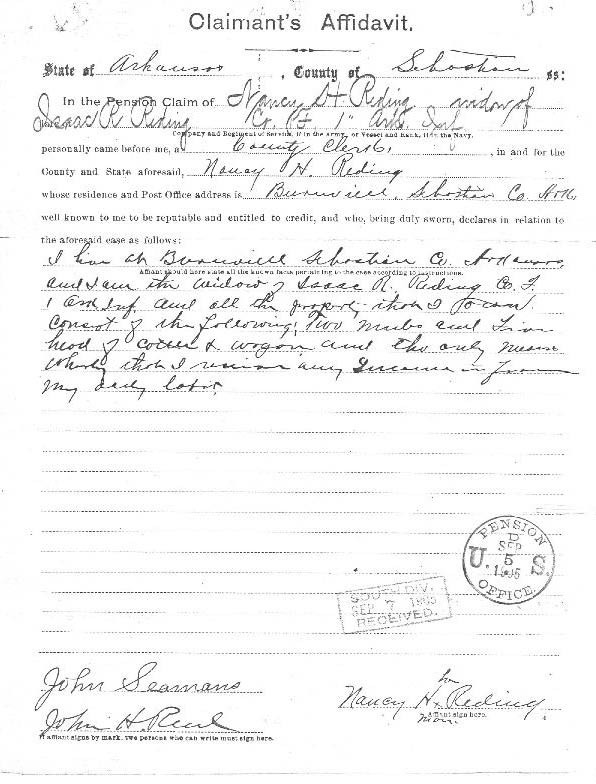 Claimant's Affidavit.
State of Arkansas, County of Sebastian ss:
In the Pension Claim of Nancy H Reding widow of
Isaac R Reding Co. F 1" Ark. Inf
Company and Regiment of Service, if in the army, or Vessel and Rank, if in the Navy.
personally came before me, a County Clerk, in and for the
County and State aforesaid, Nancy H. Reding
whose residence and Post Office address is Burnville, Sebastian Co Ark,
well known to me to be reputable and entitled to credit, and who, being duly sworn, declares in relation to
the aforesaid case as follows:
I live at Burnville Sebastian Co. Arkansas,
Affiant should here state all the known facts pertaining to the case according to instructions.
and I am the widow of Isaac R. Reding Co. F.
1 Ark Inf. and all the property that I
consist of the following, two mules and
head of & wagon, and the only means
whereby that I receive any Income is from
my daily labor.
PENSION
D
SEP
5
U. S.
OFFICE.
SOUTH DIV.
SEP 7 1905
RECEIVED.
John Seamans
her
Nancy H. Reding
Affiant sign here.
mark
John H.
If affiant signs by mark, two persons who can write must sign here.